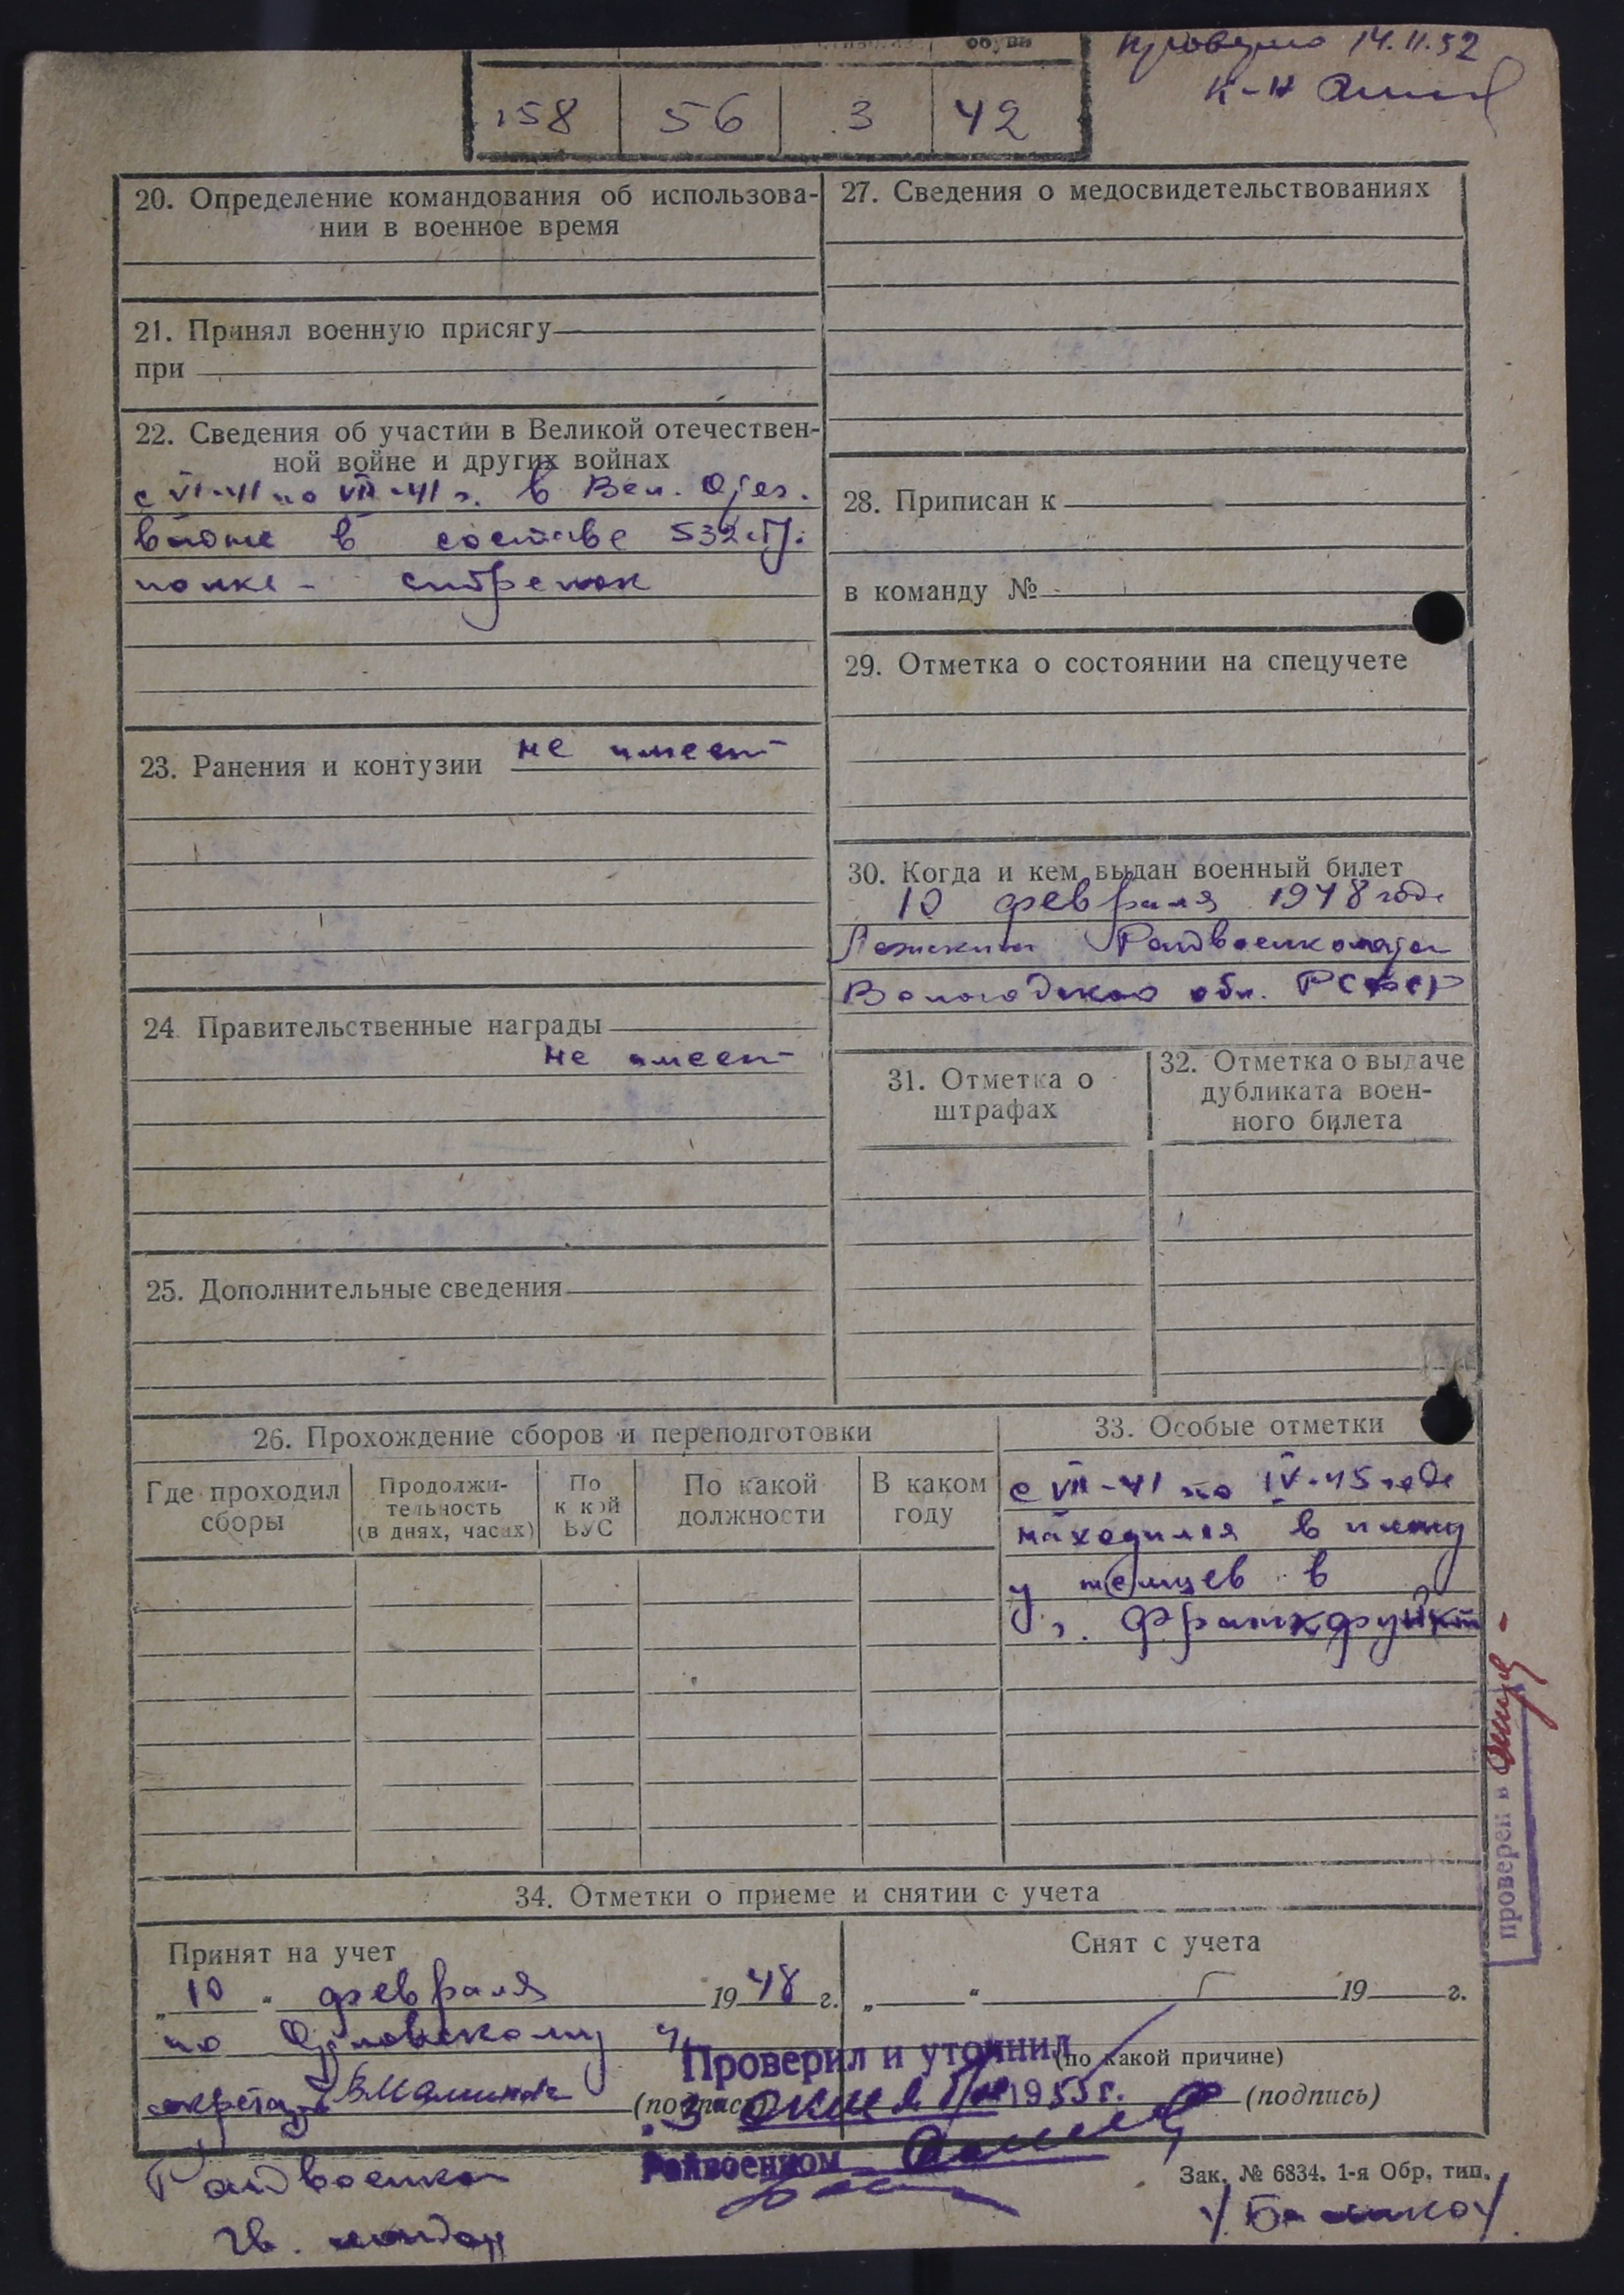 обуви
Проверено 14.11.52
к-н
158 56 3 42
20. Определение командования об использова-
нии в военное время
21. Принял военную присягу
при
22. Сведения об участии в Великой отечествен-
ной войне и других войнах
с VI-41 по VII-41 г. в Вел. Отеч.
войне в составе 532 стр.
полка - стрелок
23. Ранения и контузии не имеет
24. Правительственные награды
не имеет
25. Дополнительные сведения
27. Сведения о медосвидетельствованиях
28. Приписан к
в команду №
29. Отметка о состоянии на спецучете
30. Когда и кем выдан военный билет
10 февраля 1948 года
Райвоенкоматом
Вологодской обл. РСФСР
31. Отметка о
штрафах
32. Отметка о выдаче
дубликата воен-
ного билета
26. Прохождение сборов и переподготовки
Где проходил
сборы
Продолжи-
тельность
(в днях, часах)
По
какой
ВУС
По какой
должности
В каком
году
33. Особые отметки
с VII-41 по IV-45 года
находился в плену
у немцев в
г. Франкфуркт
проверен в
34. Отметки о приеме и снятии с учета
Принят на учет
„10“ февраля 1948 г.
по
секретарь
(подпись)
Снят с учета
„ “ 19 г.
(по какой причине)
(подпись)
Проверил и уточнил
195 г.
Райвоенком
Райвоенком
гв. майор
Зак. № 6834. 1-я Обр. тип.